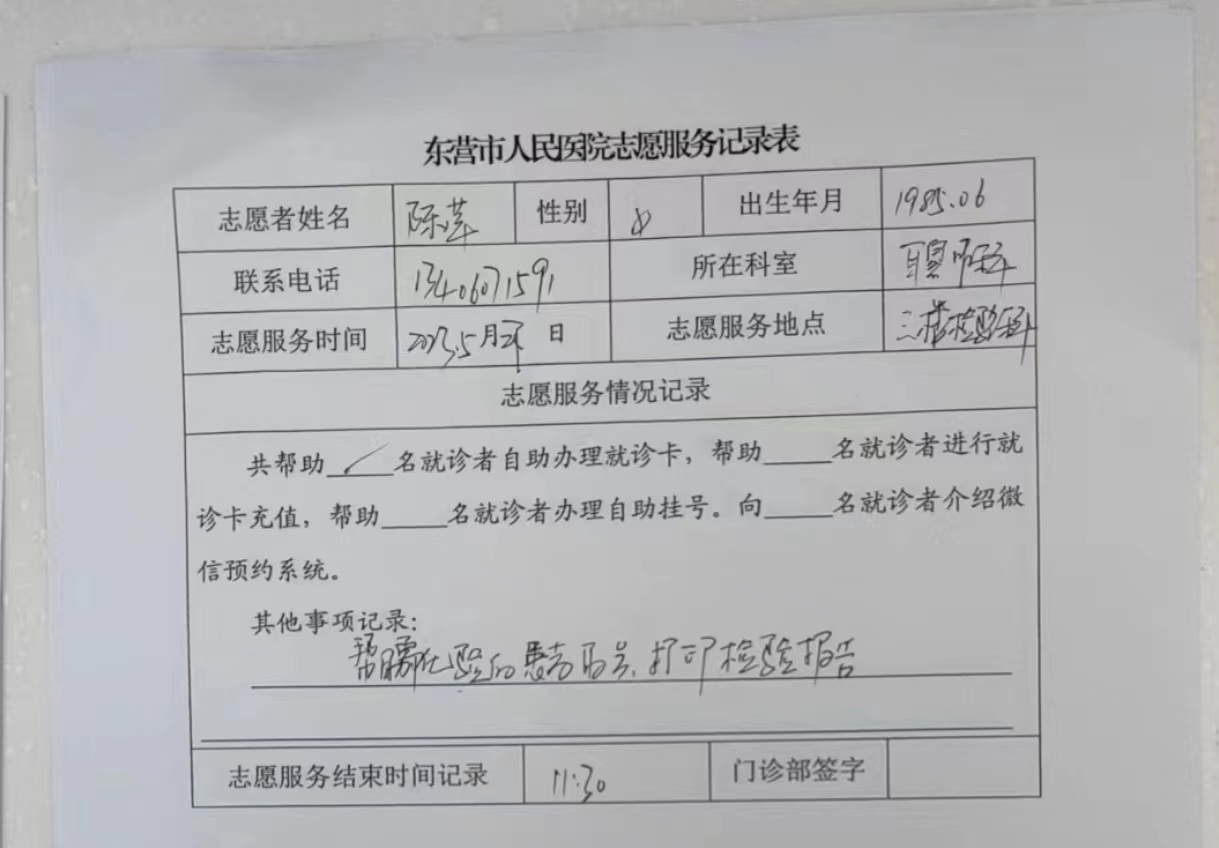 东营市人民医院志愿服务记录表
志愿者姓名 陈萍 性别 女 出生年月 1985.06
联系电话 13406071591 所在科室
志愿服务时间 2023.5月 日 志愿服务地点 三楼检验科
志愿服务情况记录
共帮助 名就诊者自助办理就诊卡，帮助 名就诊者进行就
诊卡充值，帮助 名就诊者办理自助挂号。向 名就诊者介绍微
信预约系统。
其他事项记录：
帮需化验的患者取号，打印检验报告
志愿服务结束时间记录 11:30 门诊部签字